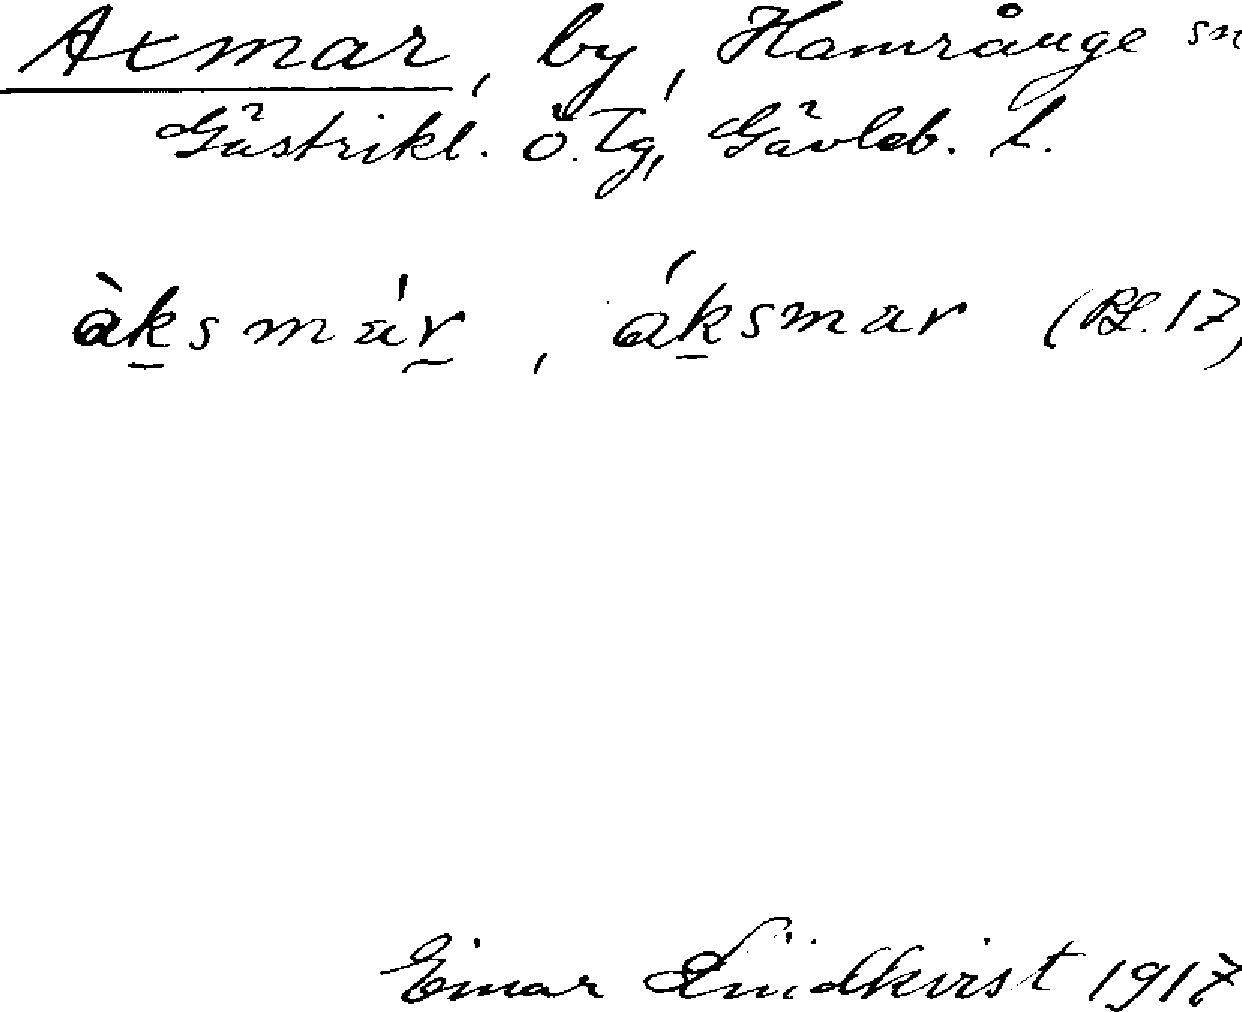 Axmar, by, Hamrånge sn
Gästrikl. Ö. Tg, Gävleb. l.
àksmár, áksmar
Einar Lindkvist 1917